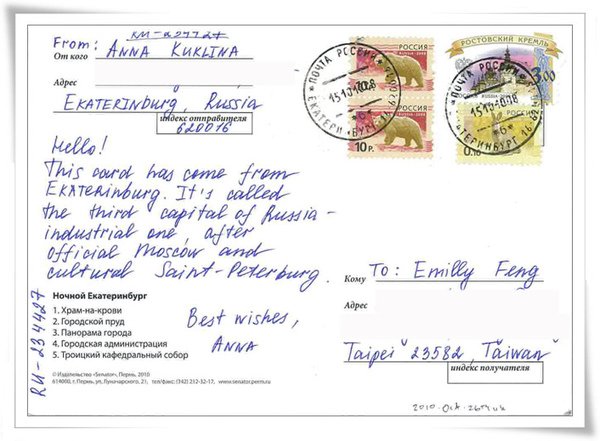 RU-234427
From: ANNA KUKLINA
От кого
Адрес
EKATERINBURG, Russia
индекс отправителя
620016
РОССИЯ
10 р.
РОССИЯ
РОСТОВСКИЙ КРЕМЛЬ
3,00
0,10
ПОЧТА РОССИИ
15101008
Hello!
This card has come from
EKATERINBURG. It's called
the third capital of Russia -
industrial one, after
official Moscow and
cultural Saint-Peterburg.
Кому
To: Emilly Feng
Адрес
Taipei 23582, Taiwan
индекс получателя
RU-234427
Ночной Екатеринбург
1. Храм-на-крови
2. Городской пруд
3. Панорама города
4. Городская администрация
5. Троицкий кафедральный собор
Best wishes,
ANNA
© Издательство «Senator», Пермь, 2010
614000, г. Пермь, ул. Луначарского, 21, тел./факс: (342) 212-32-17, www.senator.perm.ru
2010. Oct. 26